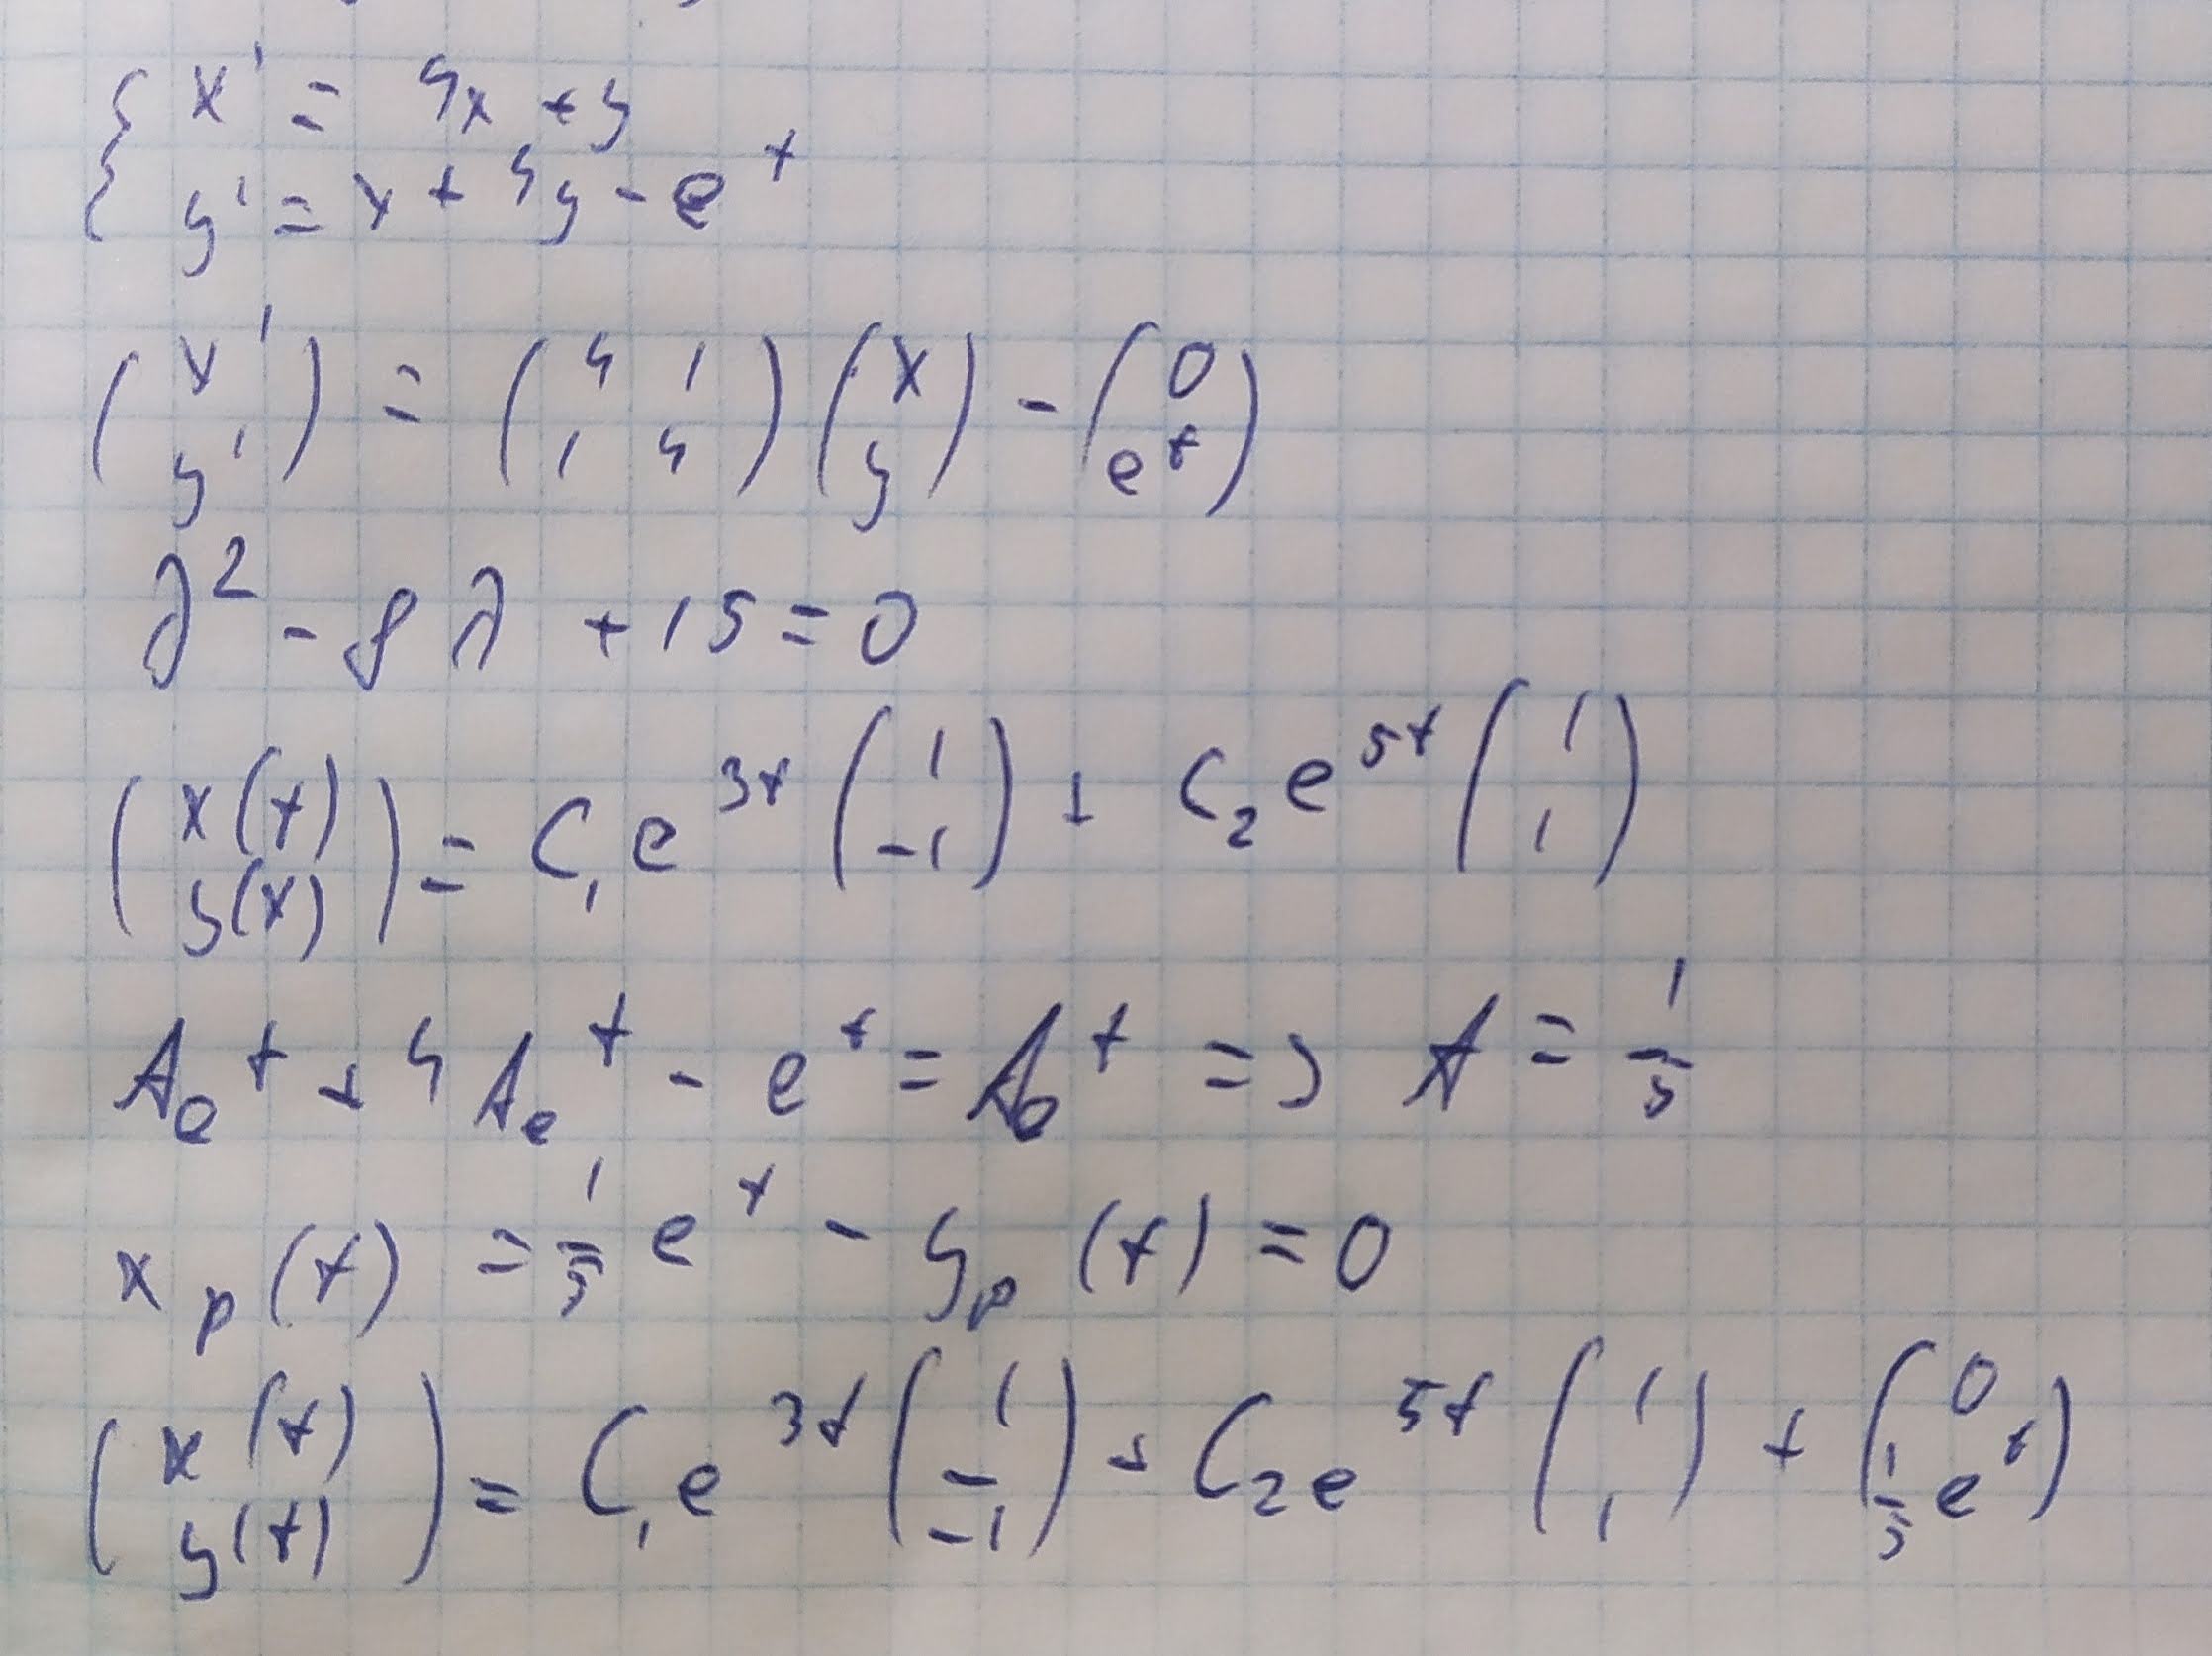 { x' = 4x + y
{ y' = x + 4y - e^t
(x' y') = (4 1 1 4)(x y) - (0 e^t)
λ^2 - 8λ + 15 = 0
(x(t) y(x)) = C_1 e^{3t} (1 -1) + C_2 e^{5t} (1 1)
Ae^t + 4Ae^t - e^t = Ae^t => A = 1/5
x_p(t) = 1/5 e^t - y_p(t) = 0
(x(t) y(t)) = C_1 e^{3t} (1 -1) + C_2 e^{5t} (1 1) + (0 1/5 e^t)